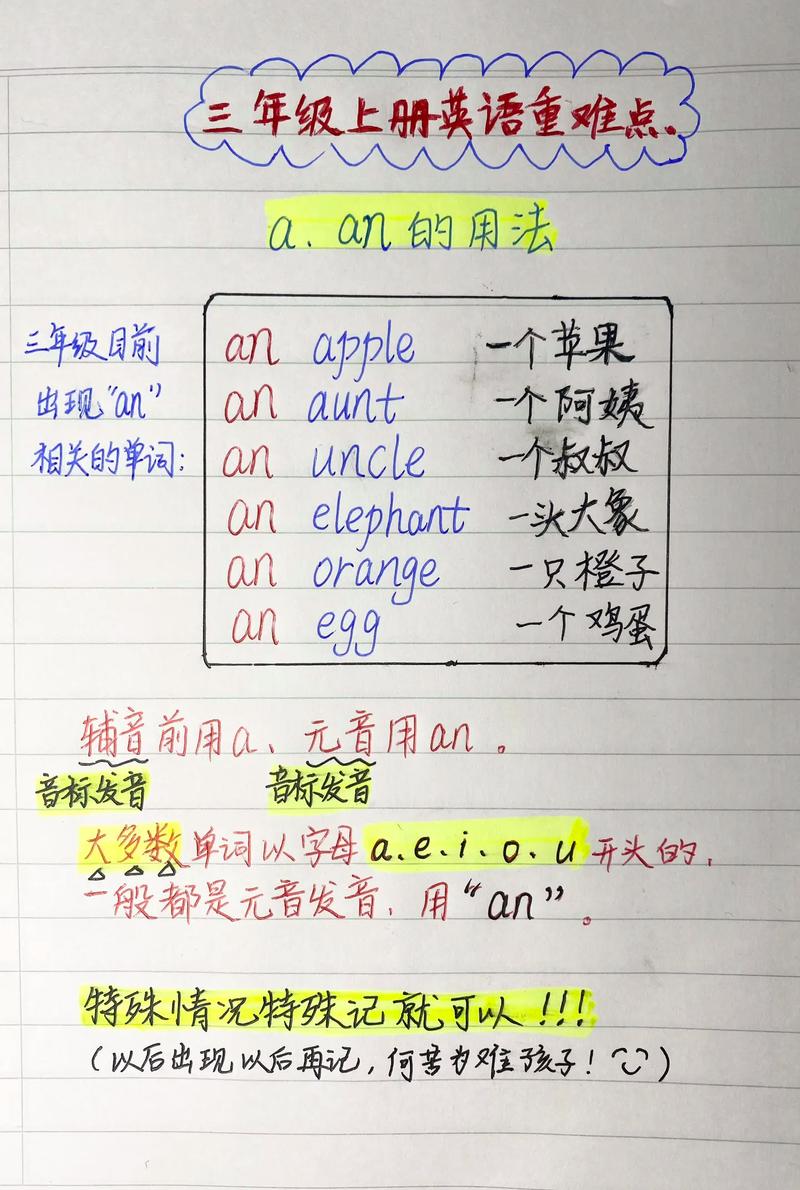 三年级上册英语重难点。
a、an的用法
三年级目前
出现“an”
相关的单词:
an apple 一个苹果
an aunt 一个阿姨
an uncle 一个叔叔
an elephant 一头大象
an orange 一只橙子
an egg 一个鸡蛋
辅音前用a、元音用an。
音标发音 音标发音
大多数单词以字母a.e.i.o.u开头的,
一般都是元音发音,用“an”。
特殊情况特殊记就可以!!!
(以后出现以后再记,何苦为难孩子!)